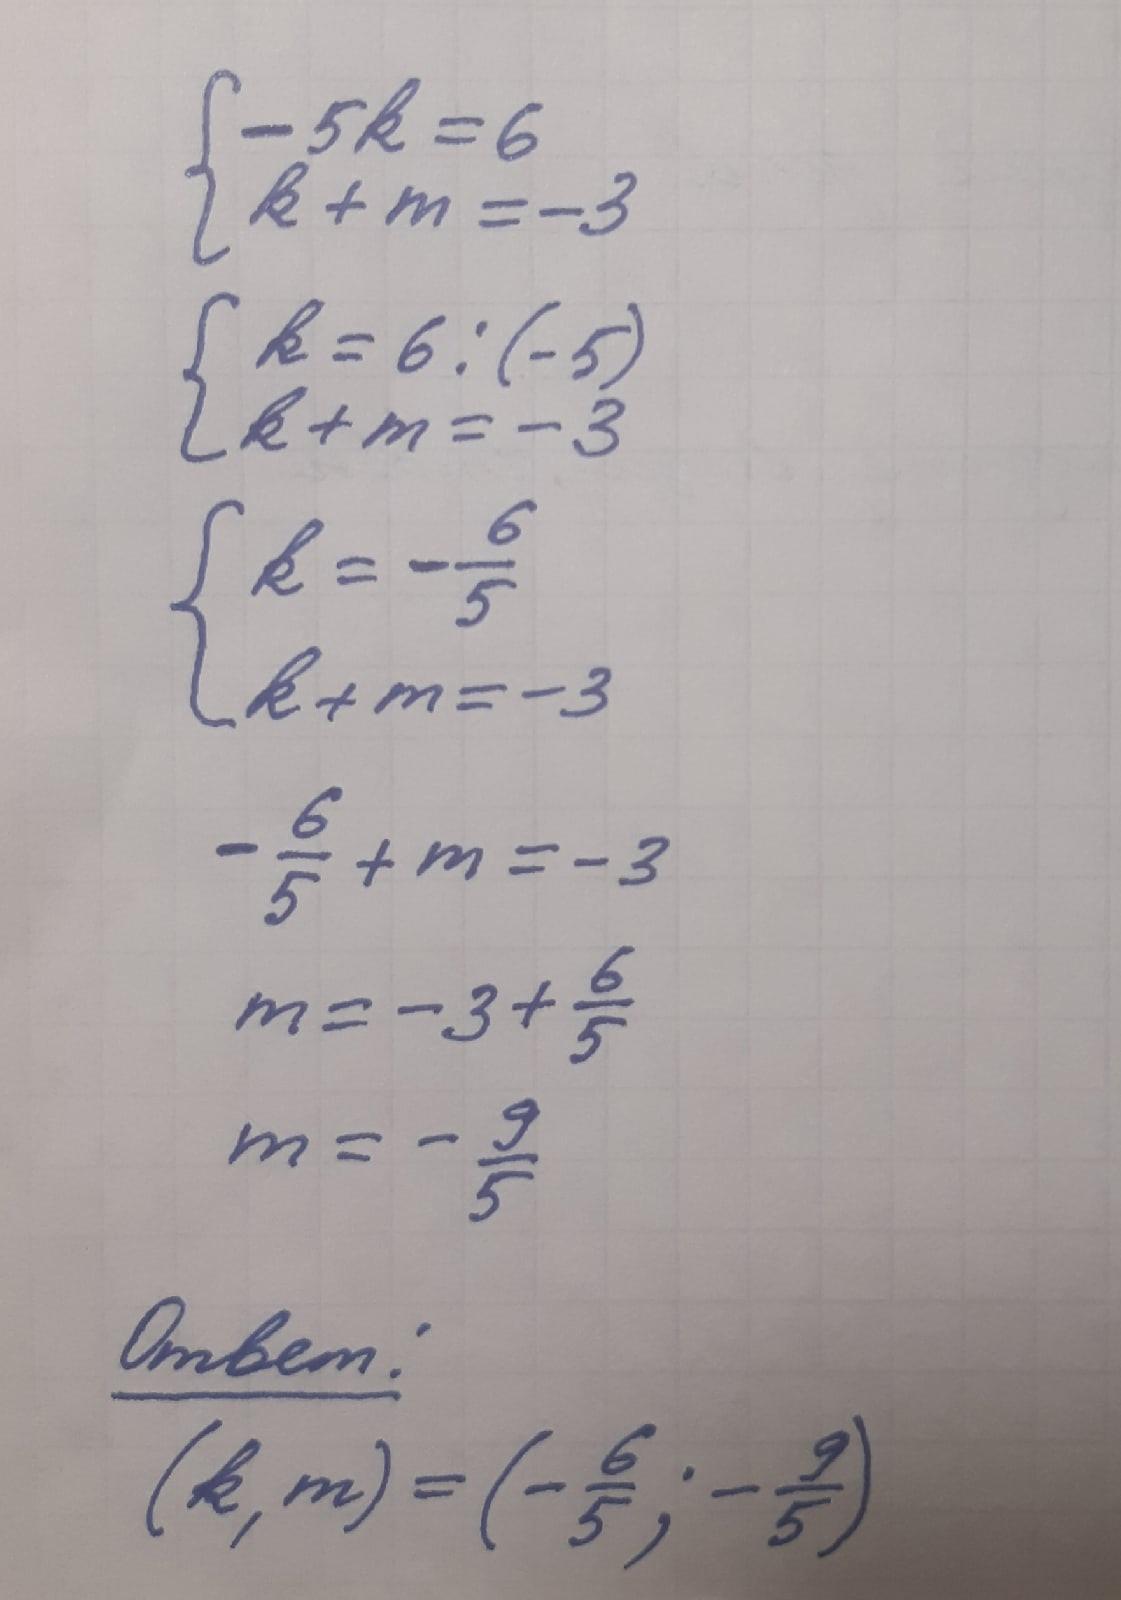 { -5k = 6
k + m = -3
{ k = 6 : (-5)
k + m = -3
{ k = -6/5
k + m = -3
-6/5 + m = -3
m = -3 + 6/5
m = -9/5
Ответ:
(k, m) = (-6/5; -9/5)